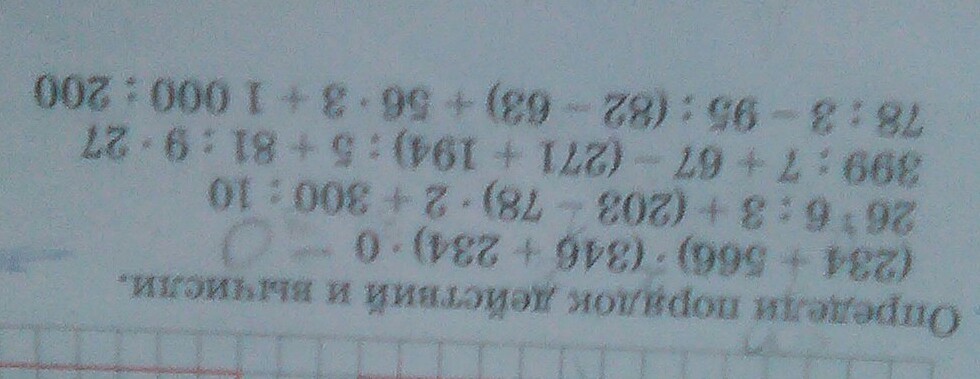 Определи порядок действий и вычисли.
(234 + 566) · (346 + 234) · 0
26 · 6 : 3 + (203 − 78) · 2 + 300 : 10
399 : 7 + 67 − (271 + 194) : 5 + 81 : 9 · 27
78 : 3 − 95 : (82 − 63) + 56 · 3 + 1 000 : 200